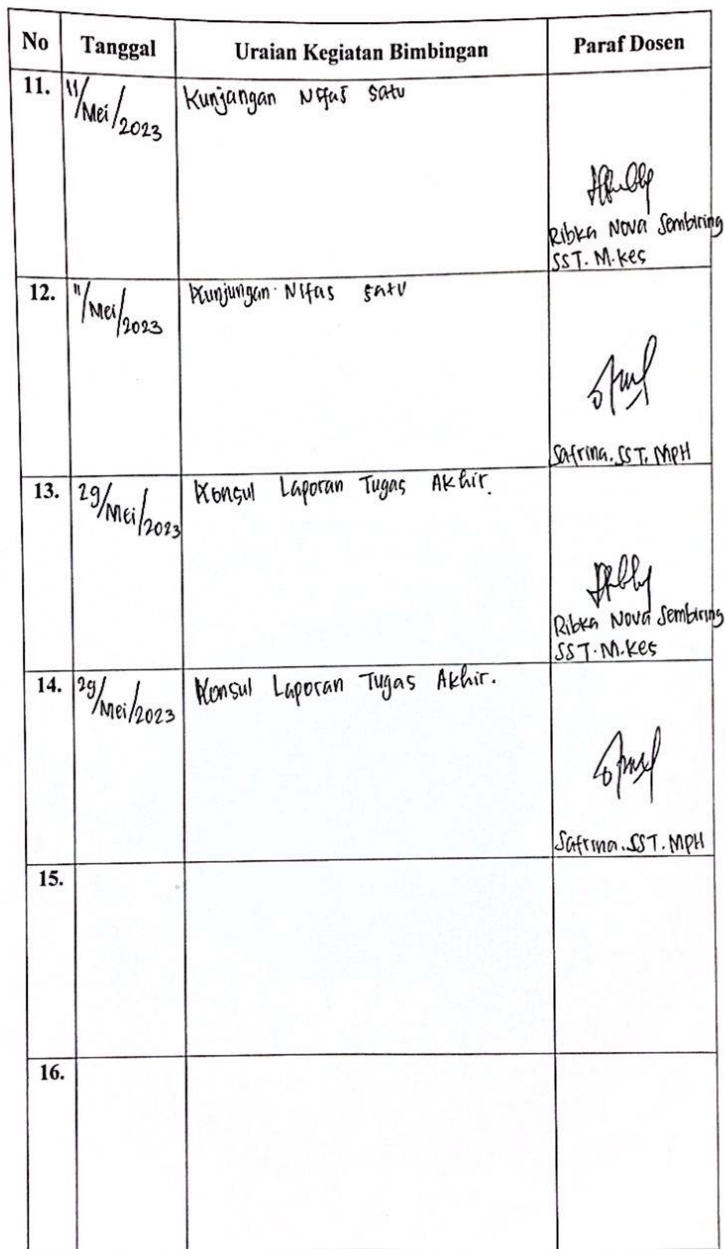 No Tanggal Uraian Kegiatan Bimbingan Paraf Dosen
11. 11/Mei/2023 Kunjangan Nifas Satu
Ribka Nova Sembiring
SST. M.kes
12. 11/Mei/2023 Kunjungan Nifas satu
Safrina. SST. MPH
13. 29/Mei/2023 Konsul Laporan Tugas Akhir.
Ribka Nova Sembiring
SST. M.kes
14. 29/Mei/2023 Konsul Laporan Tugas Akhir.
Safrina. SST. MPH
15.
16.